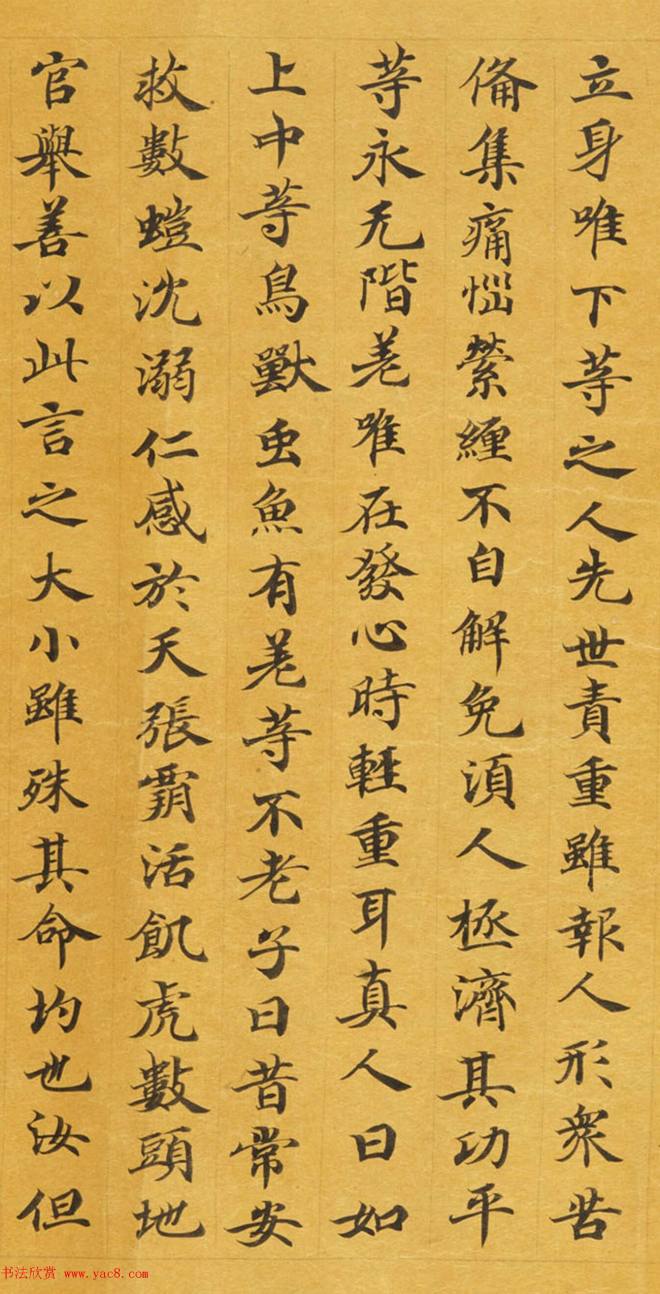 立身唯下等之人先世責重雖報人形衆苦
俻集痛惱縈纏不自解免湏人拯濟其功平
等永无階差唯在發心時輕重耳真人曰如
上中等鳥獸虫魚有差等不老子曰昔常安
救數螘沈溺仁感於天張霸活飢虎數頭地
官舉善以此言之大小雖殊其命均也汝但
书法欣赏 www.yac8.com